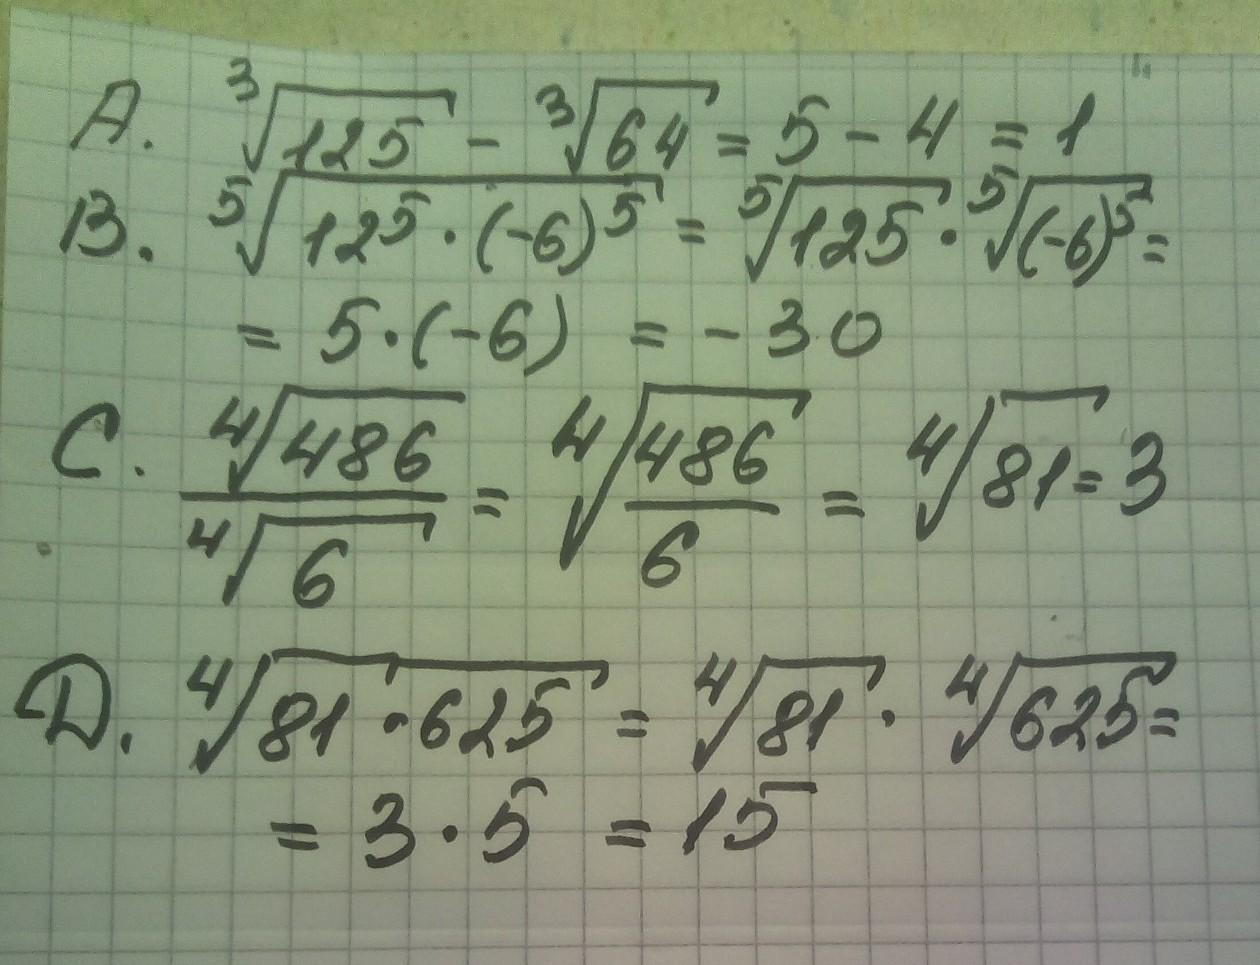 A. ∛125 - ∛64 = 5 - 4 = 1
B. ⁵√(12⁵ · (-6)⁵) = ⁵√125 · ⁵√(-6)⁵ =
= 5 · (-6) = - 30
C. ⁴√486 / ⁴√6 = ⁴√(486/6) = ⁴√81 = 3
D. ⁴√(81 · 625) = ⁴√81 · ⁴√625 =
= 3 · 5 = 15